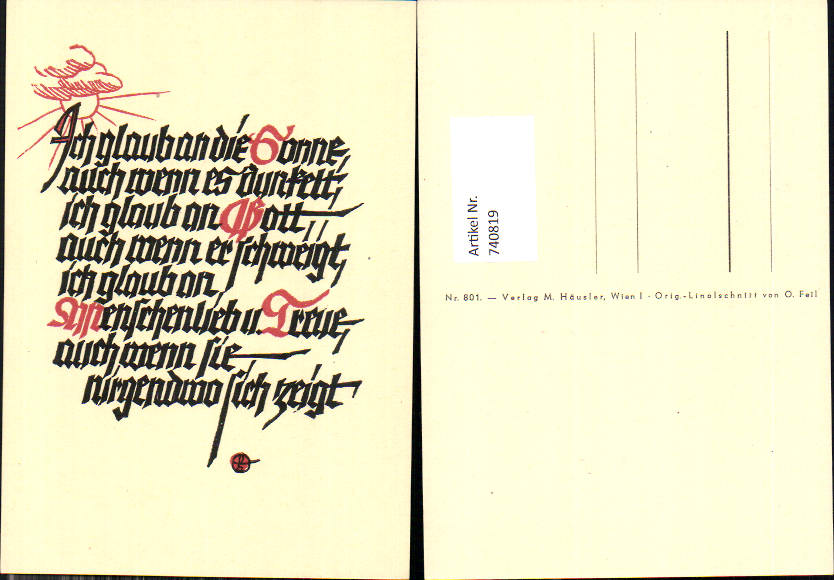 Ich glaub an die Sonne,
auch wenn es dunkelt,
ich glaub an Gott,
auch wenn er schweigt,
ich glaub an
Menschenlieb u. Treue,
auch wenn sie,
nirgendwo sich zeigt
Artikel Nr.
740819
Nr. 801. — Verlag M. Häusler, Wien I - Orig.-Linolschnitt von O. Feil